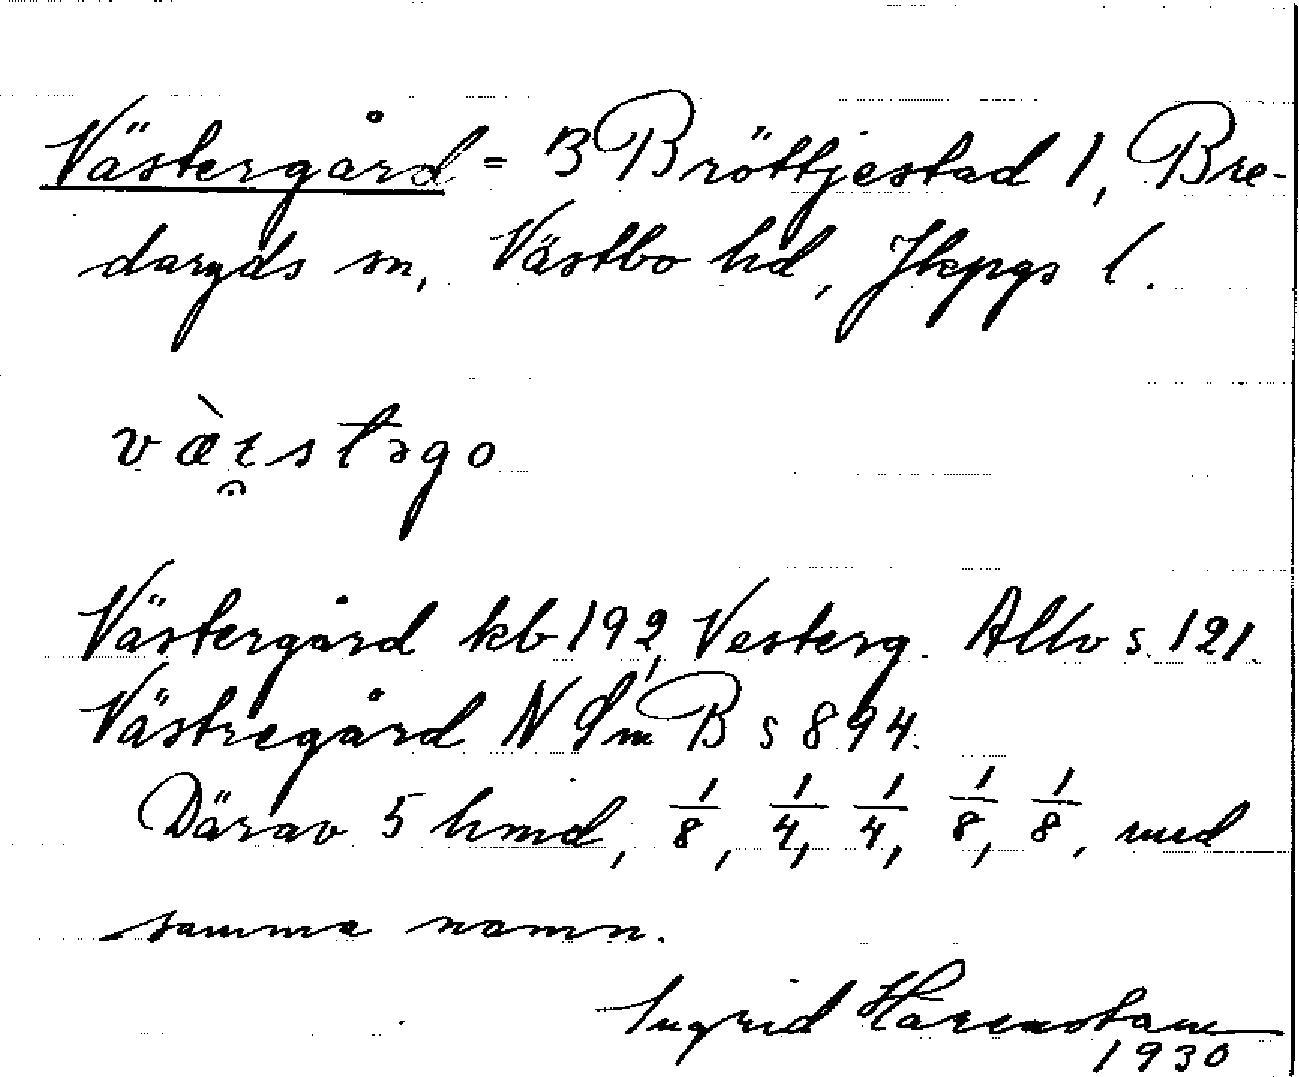 Västergård = B Bröttjestad 1, Bre-
daryds sn, Västbo hd, Jkpgs l.
væ̀ɛ̯stəgo
Västergård kb 192, Vesterg. Allv s. 121.
Västregård NSmB s 894.
Därav 5 hmd, 1/8, 1/4, 1/4, 1/8, 1/8, med
samma namn.
Ingrid Härenstam
1930